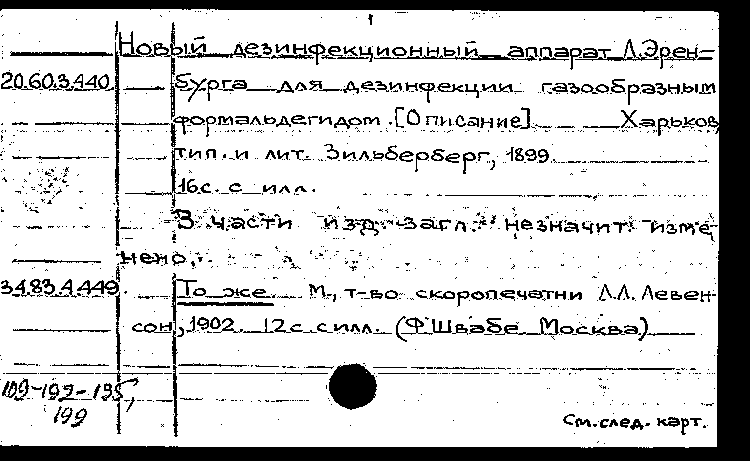 Новый дезинфекционный аппарат Л.Эрен-
20.60.3.440 бурга для дезинфекции газообразным
формальдегидом.[Описание] Харьков,
тип. и лит. Зильберберг, 1899
16с. с илл.
В части изд. загл. незначит. изме-
нено.
34.83.4.449. То же М., т-во скоропечатни А.А. Левен-
сон, 1902. 12с. с илл. (Ф.Швабе Москва)
109-192-195,
199
См. след. карт.